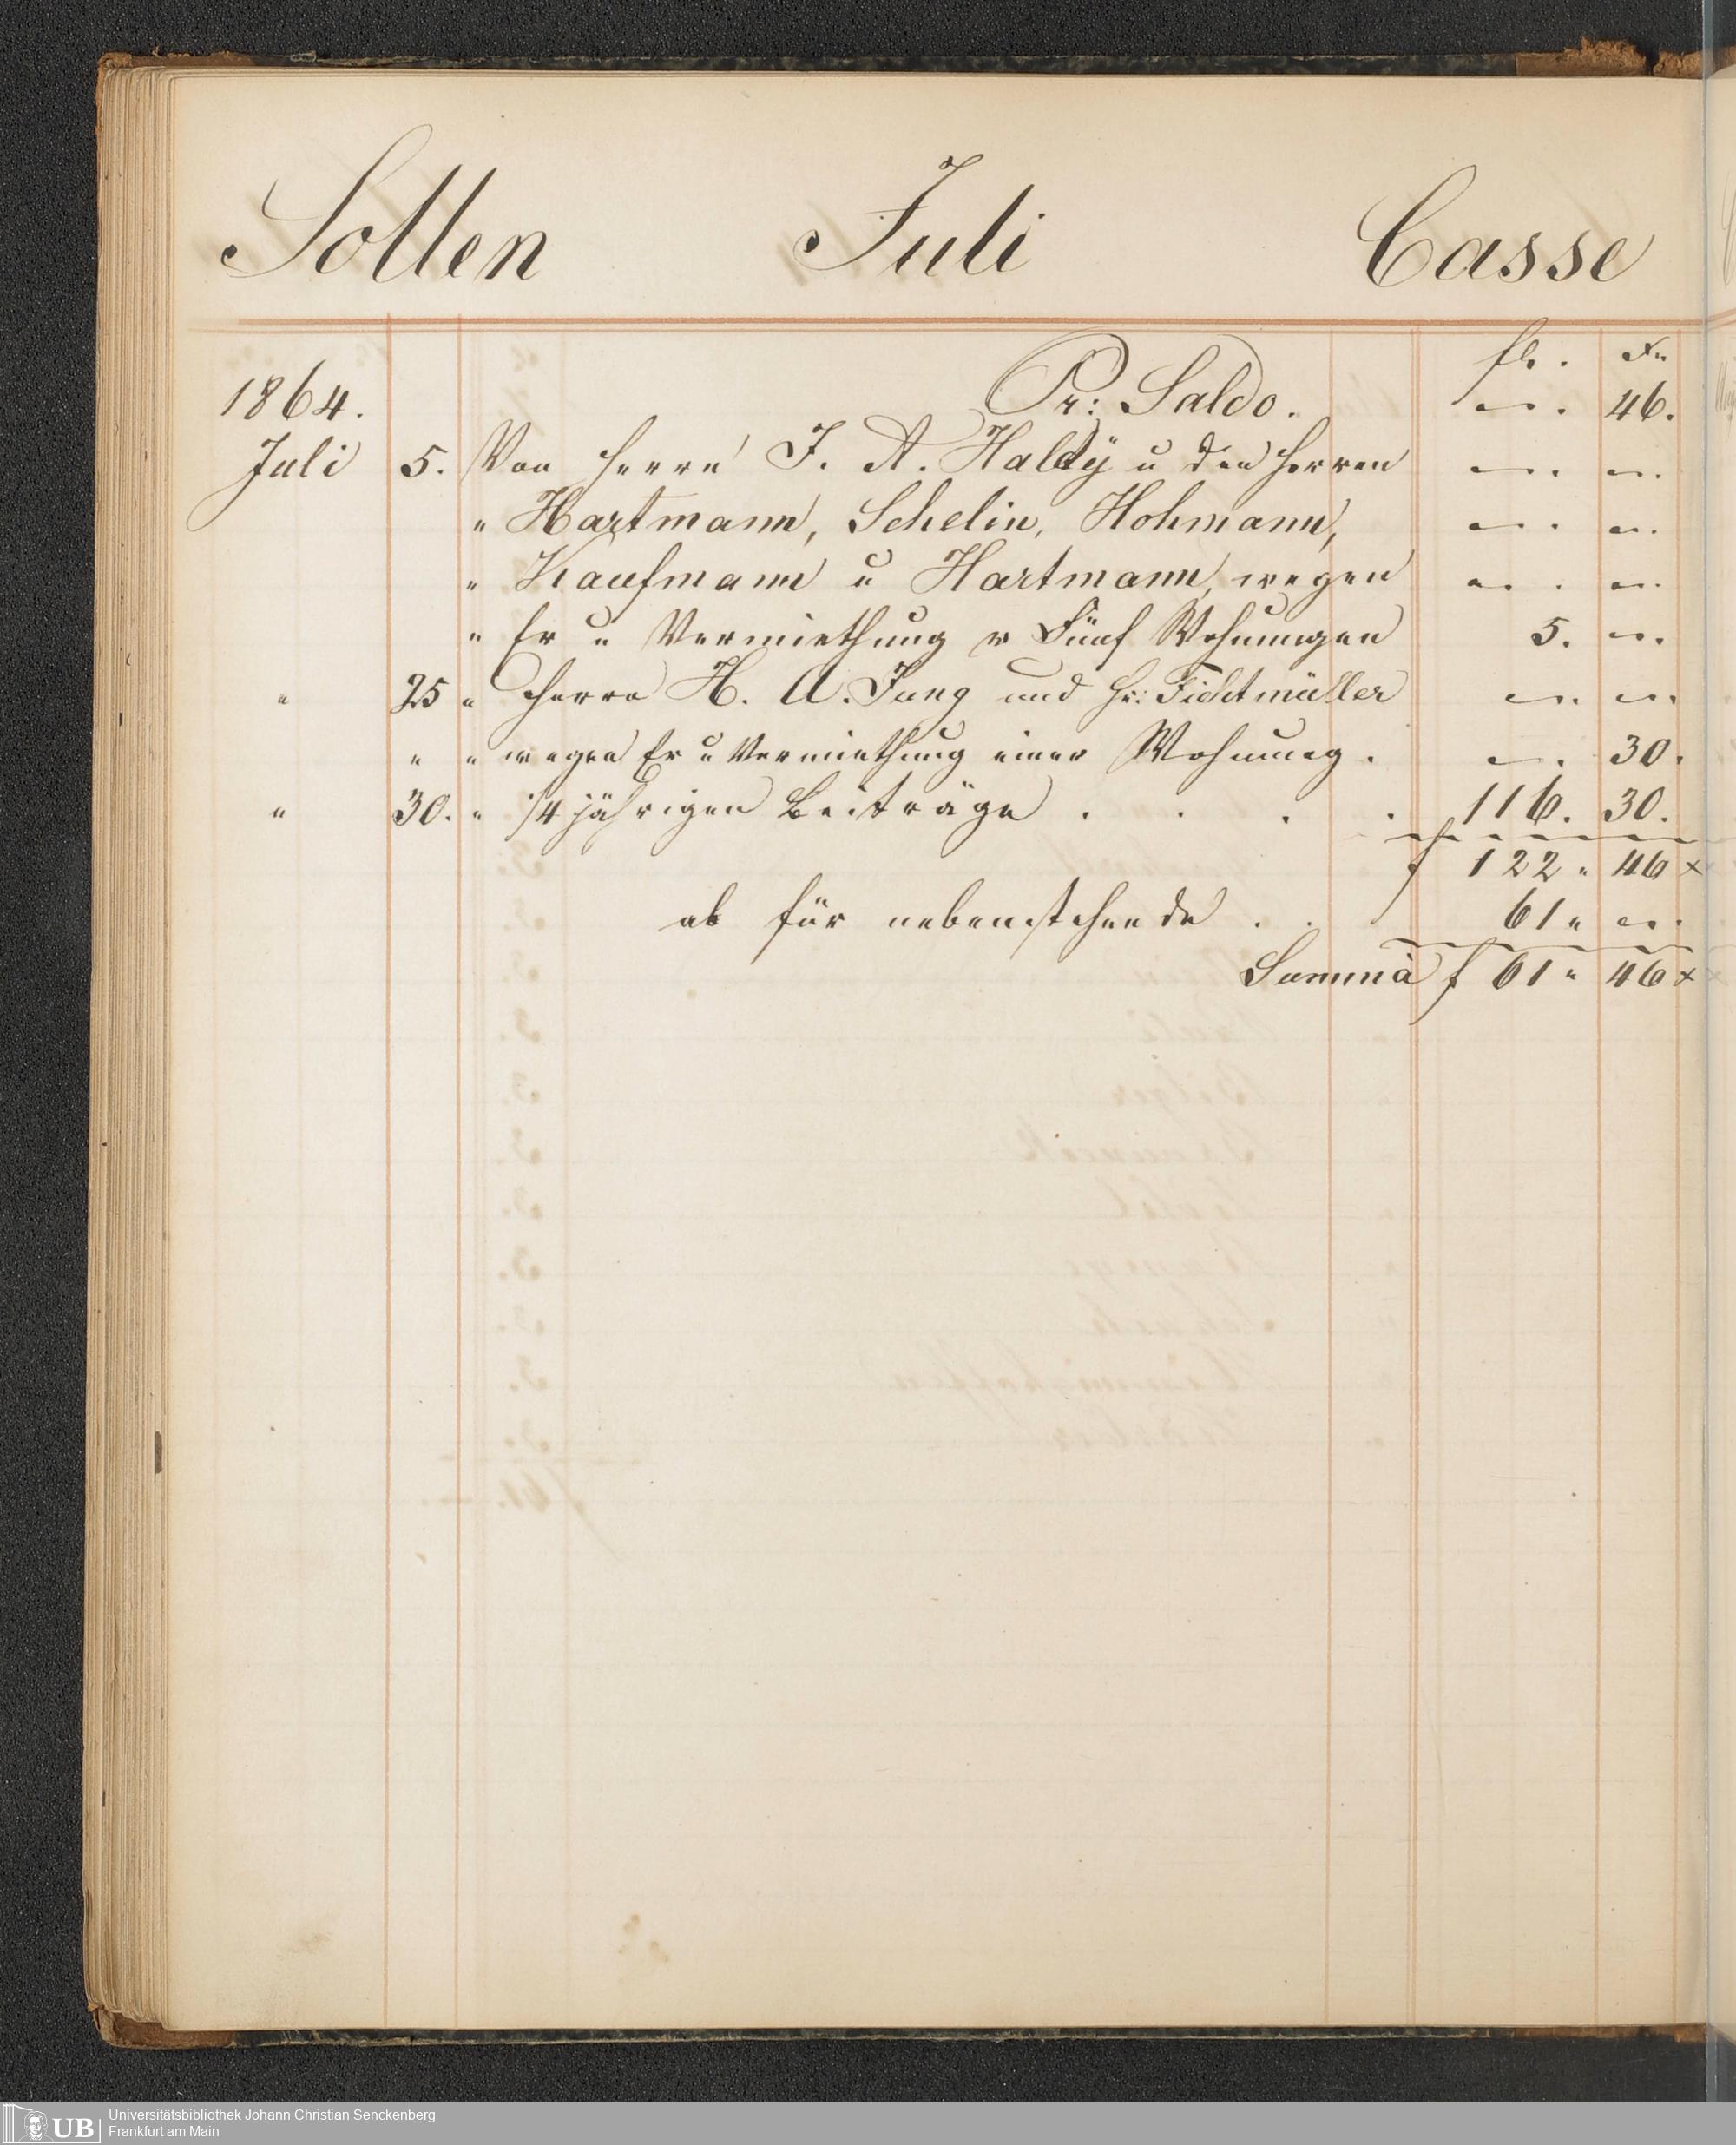 Sollen Juli Casse
fl. Xr
1864. Pr: Saldo. —. 46.
Juli 5. Von Herrn J. A. Haldÿ u den Herren —. —.
" Hartmann, Schelin, Hohmann, —. —.
" Kaufmann u Hartmann, wegen —. —.
" Er u Vermiethung v Fünf Wohnungen 5. —.
" 25 " Herrn H. A. Jung und Hr: Fichtmüller —. —.
" " wegen Er u Vermiethung einer Wohnung. —. 30.
" 30. " 1/4 jährigen Beiträge . . . . 116. 30.
f 122 " 46 x
ab für nebenstehende . . 61 " —.
Summa f 61 " 46 x
UB Universitätsbibliothek Johann Christian Senckenberg
Frankfurt am Main